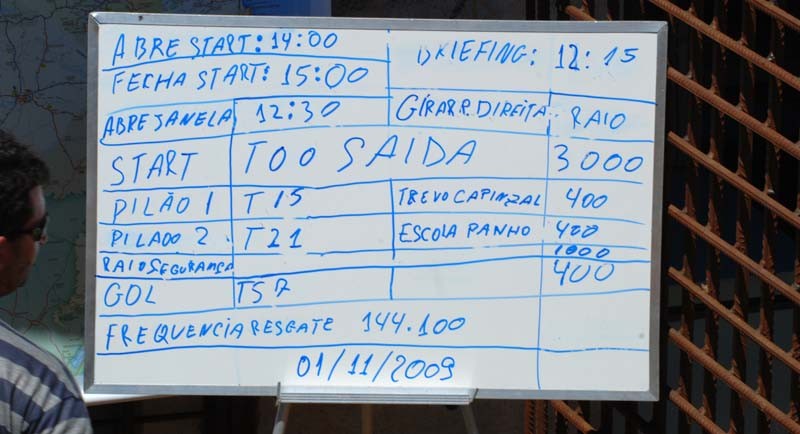 ABRE START: 14:00 BRIEFING: 12:15
FECHA START: 15:00
ABRE JANELA 12:30 GIRAR P. DIREITA: RAIO
START TOO SAIDA 3000
PILÃO 1 T15 TREVO CAPINZAL 400
PILAOO 2 T21 ESCOLA PANHO 400
RAIO SEGURANÇA 1000
GOL TS7 400
FREQUENCIA RESGATE 144.100
01/11/2009